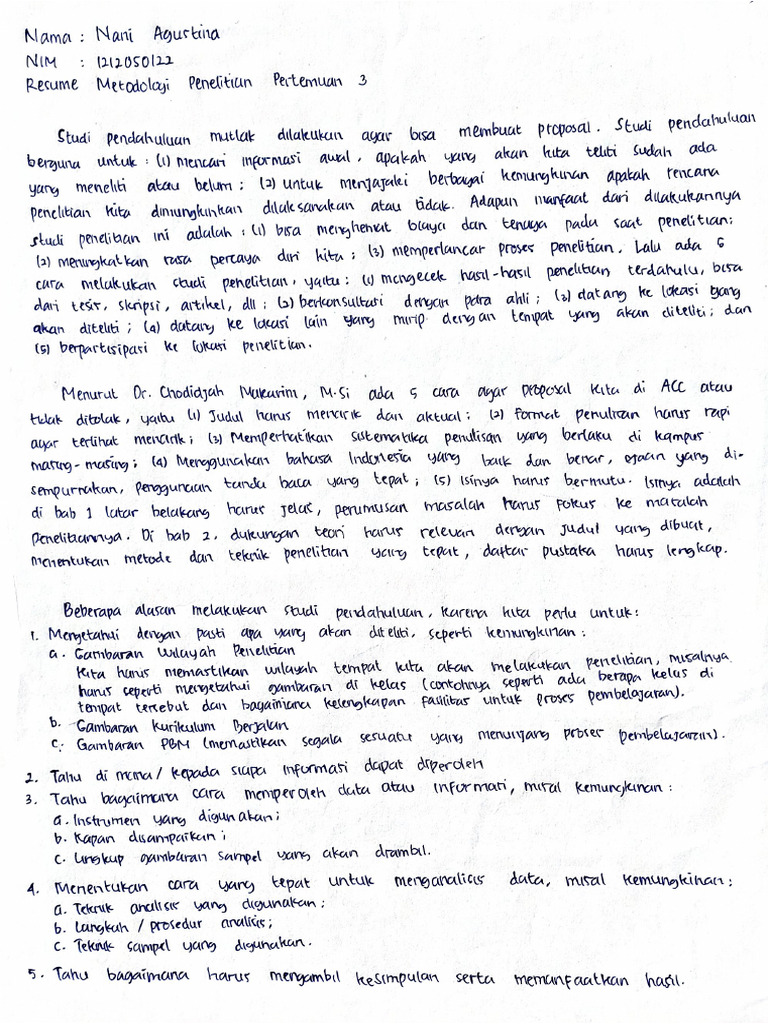 Nama : Nani Agustina
NIM : 1212050122
Resume Metodologi Penelitian Pertemuan 3
Studi pendahuluan mutlak dilakukan agar bisa membuat proposal. Studi pendahuluan
berguna untuk : (1) mencari informasi awal, apakah yang akan kita teliti sudah ada
yang meneliti atau belum ; (2) untuk menjajaki berbagai kemungkinan apakah rencana
penelitian kita dimungkinkan dilaksanakan atau tidak. Adapun manfaat dari dilakukannya
studi penelitian ini adalah : (1) bisa menghemat biaya dan tenaga pada saat penelitian;
(2) meningkatkan rasa percaya diri kita ; (3) memperlancar proses penelitian. Lalu ada 5
cara melakukan studi penelitian, yaitu : (1) mengecek hasil-hasil penelitian terdahulu, bisa
dari tesis, skripsi, artikel, dll ; (2) berkonsultasi dengan para ahli ; (3) datang ke lokasi yang
akan diteliti ; (4) datang ke lokasi lain yang mirip dengan tempat yang akan diteliti ; dan
(5) berpartisipasi ke lokasi penelitian.
Menurut Dr. Chodidjah Makarim, M.Si ada 5 cara agar proposal kita di ACC atau
tidak ditolak, yaitu (1) Judul harus menarik dan aktual ; (2) format penulisan harus rapi
agar terlihat menarik ; (3) Memperhatikan sistematika penulisan yang berlaku di kampus
masing-masing ; (4) Menggunakan bahasa Indonesia yang baik dan benar, ejaan yang di-
sempurnakan, penggunaan tanda baca yang tepat ; (5) Isinya harus bermutu. Isinya adalah
di bab 1 latar belakang harus jelas, perumusan masalah harus fokus ke masalah
penelitiannya. Di bab 2, dukungan teori harus relevan dengan judul yang dibuat,
menentukan metode dan teknik penelitian yang tepat, daftar pustaka harus lengkap.
Beberapa alasan melakukan studi pendahuluan, karena kita perlu untuk :
1. Mengetahui dengan pasti apa yang akan diteliti, seperti kemungkinan :
a. Gambaran Wilayah Penelitian
Kita harus memastikan wilayah tempat kita akan melakukan penelitian, misalnya
harus seperti mengetahui gambaran di kelas (contohnya seperti ada berapa kelas di
tempat tersebut dan bagaimana kelengkapan fasilitas untuk proses pembelajaran).
b. Gambaran Kurikulum Berjalan
c. Gambaran PBM (memastikan segala sesuatu yang menunjang proses pembelajaran).
2. Tahu di mana / kepada siapa informasi dapat diperoleh
3. Tahu bagaimana cara memperoleh data atau informasi, misal kemungkinan :
a. Instrumen yang digunakan ;
b. Kapan disampaikan ;
c. Lingkup gambaran sampel yang akan diambil.
4. Menentukan cara yang tepat untuk menganalisis data, misal kemungkinan :
a. Teknik analisis yang digunakan ;
b. Langkah / prosedur analisis ;
c. Teknik sampel yang digunakan.
5. Tahu bagaimana harus mengambil kesimpulan serta memanfaatkan hasil.